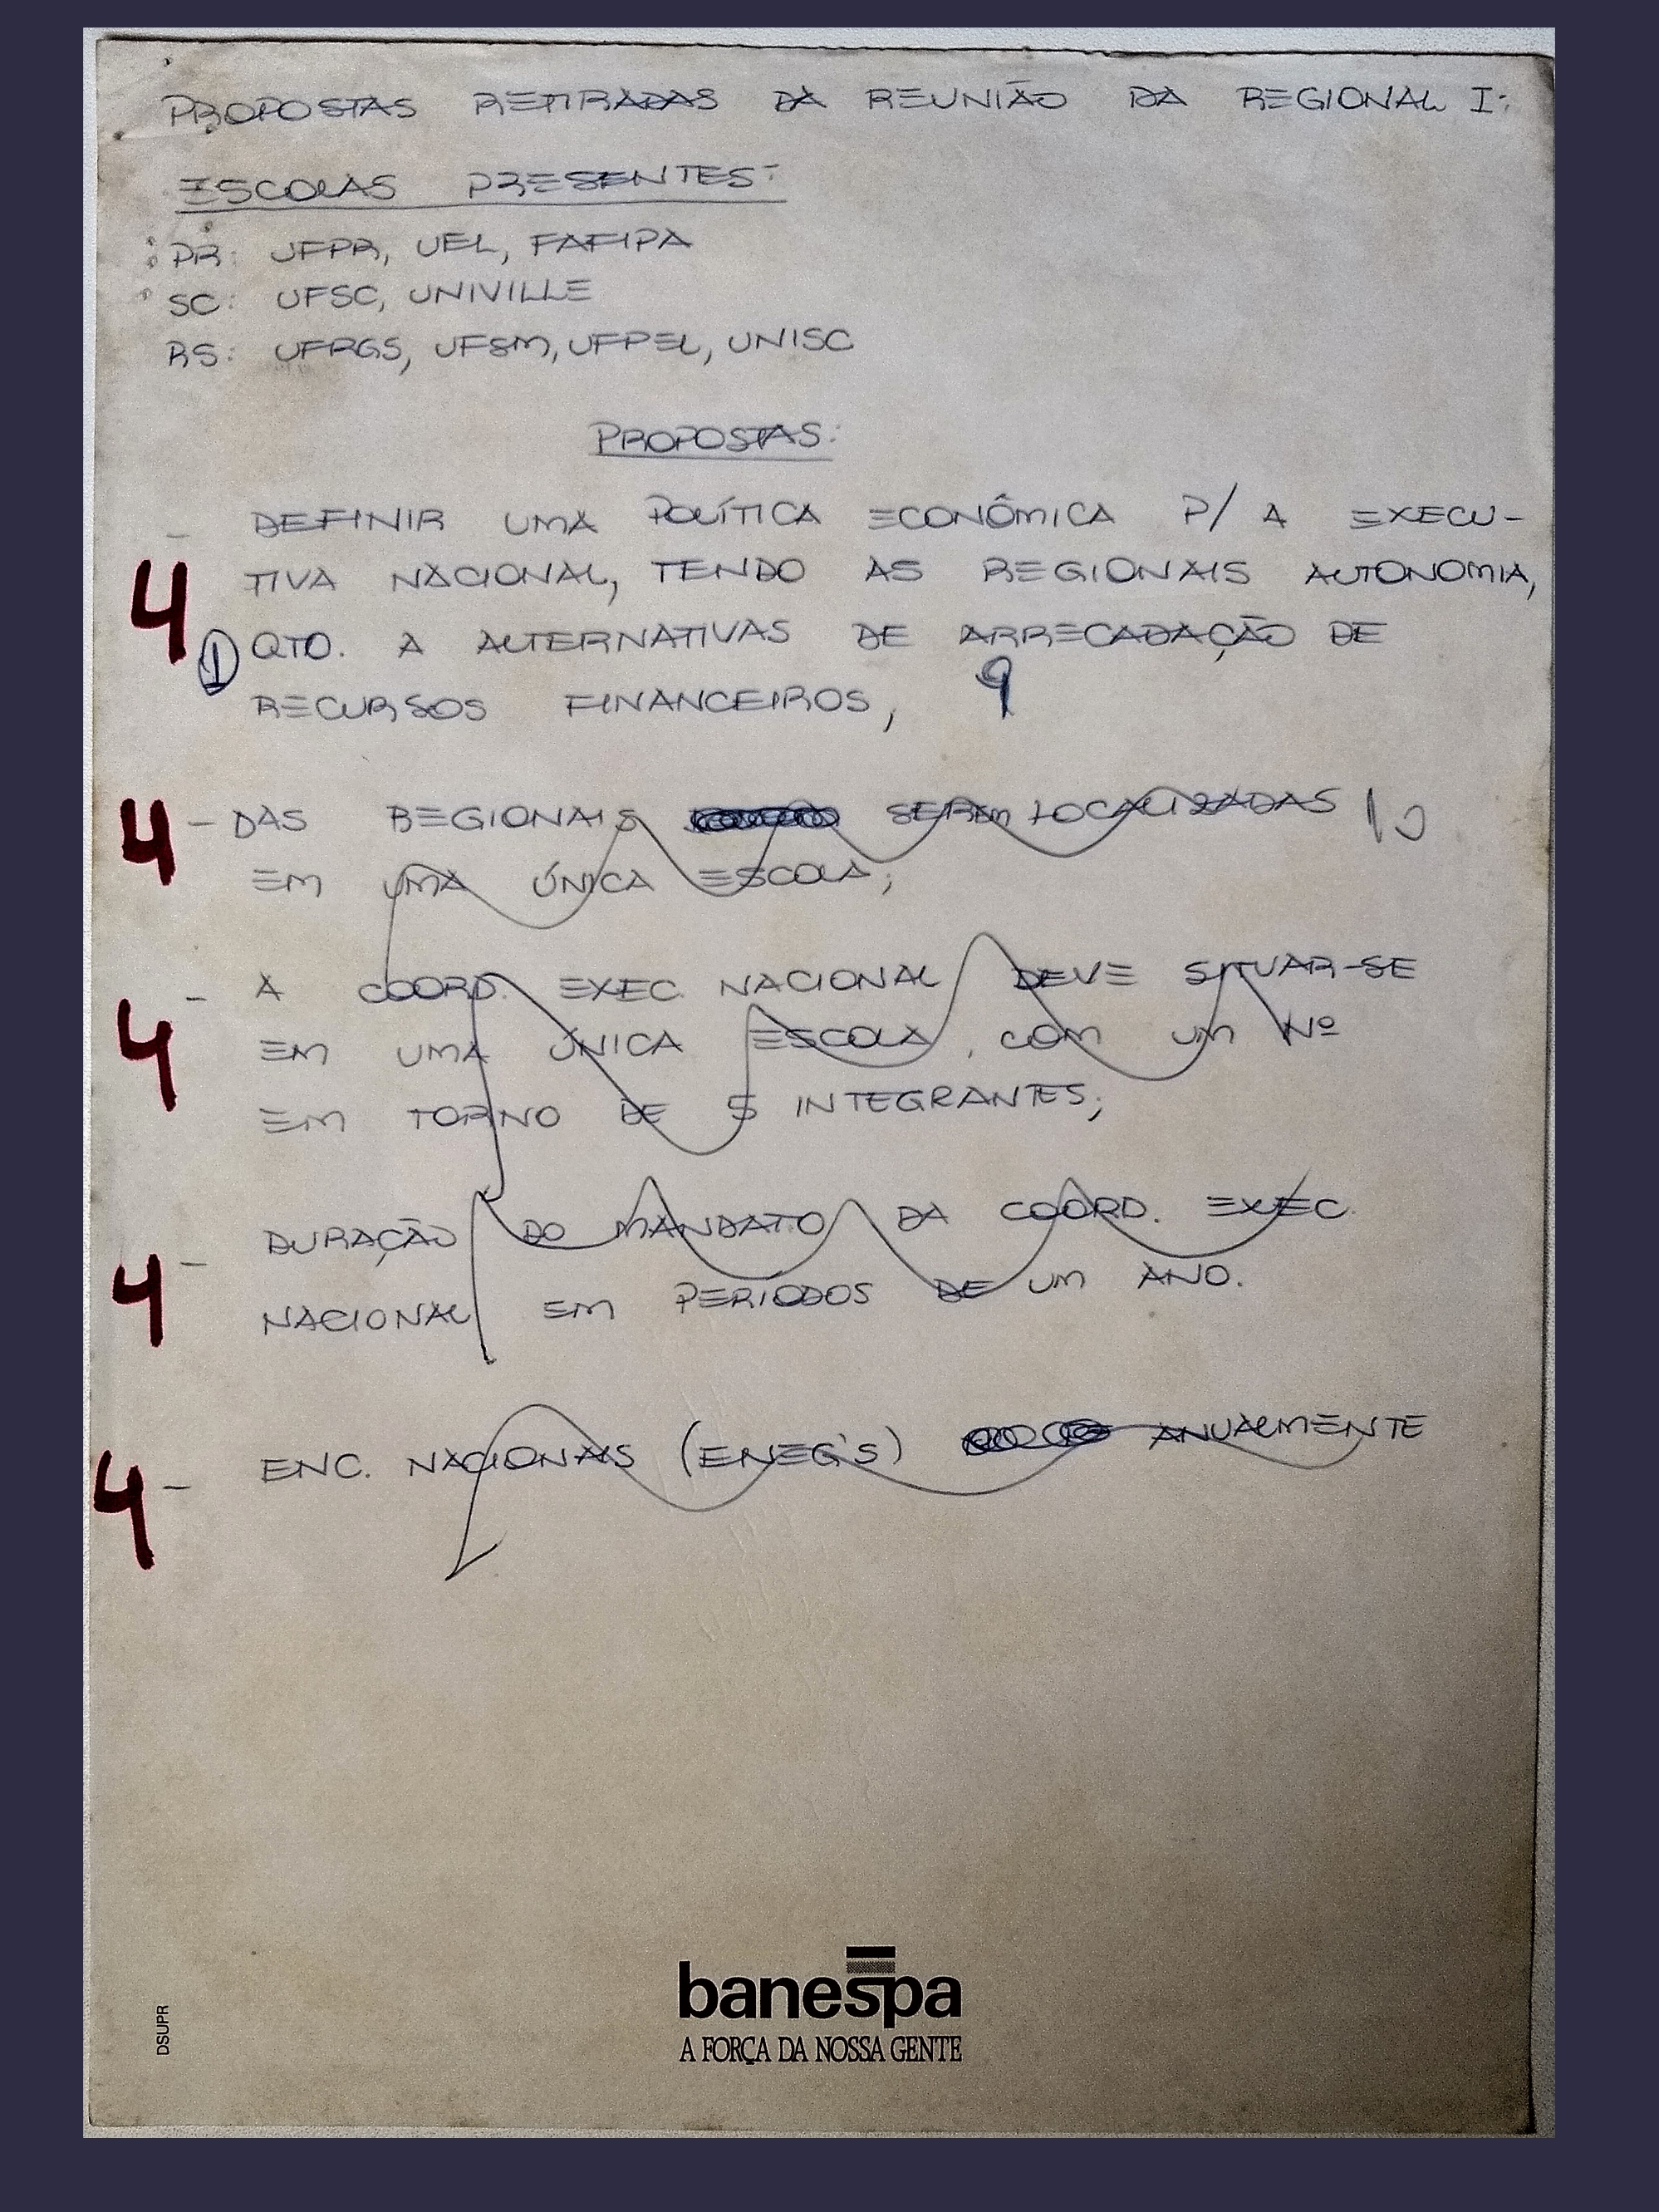 PROPOSTAS RETIRADAS DA REUNIÃO DA REGIONAL I:
ESCOLAS PRESENTES:
PR: UFPR, UEL, FAFIPA
SC: UFSC, UNIVILLE
RS: UFRGS, UFSM, UFPEL, UNISC
PROPOSTAS:
- DEFINIR UMA POLÍTICA ECONÔMICA P/ A EXECU-
4 TIVA NACIONAL, TENDO AS REGIONAIS AUTONOMIA,
1 QTO. A ALTERNATIVAS DE ARRECADAÇÃO DE
RECURSOS FINANCEIROS, 9
4 - DAS REGIONAIS SEREM LOCALIZADAS
EM UMA ÚNICA ESCOLA;
4 - A COORD. EXEC. NACIONAL DEVE SITUAR-SE
EM UMA ÚNICA ESCOLA, COM UM Nº
EM TORNO DE 5 INTEGRANTES;
4 - DURAÇÃO DO MANDATO DA COORD. EXEC.
NACIONAL EM PERIODOS DE UM ANO.
4 - ENC. NACIONAIS (ENEG'S) ANUALMENTE
banespa
A FORÇA DA NOSSA GENTE
DSUPR